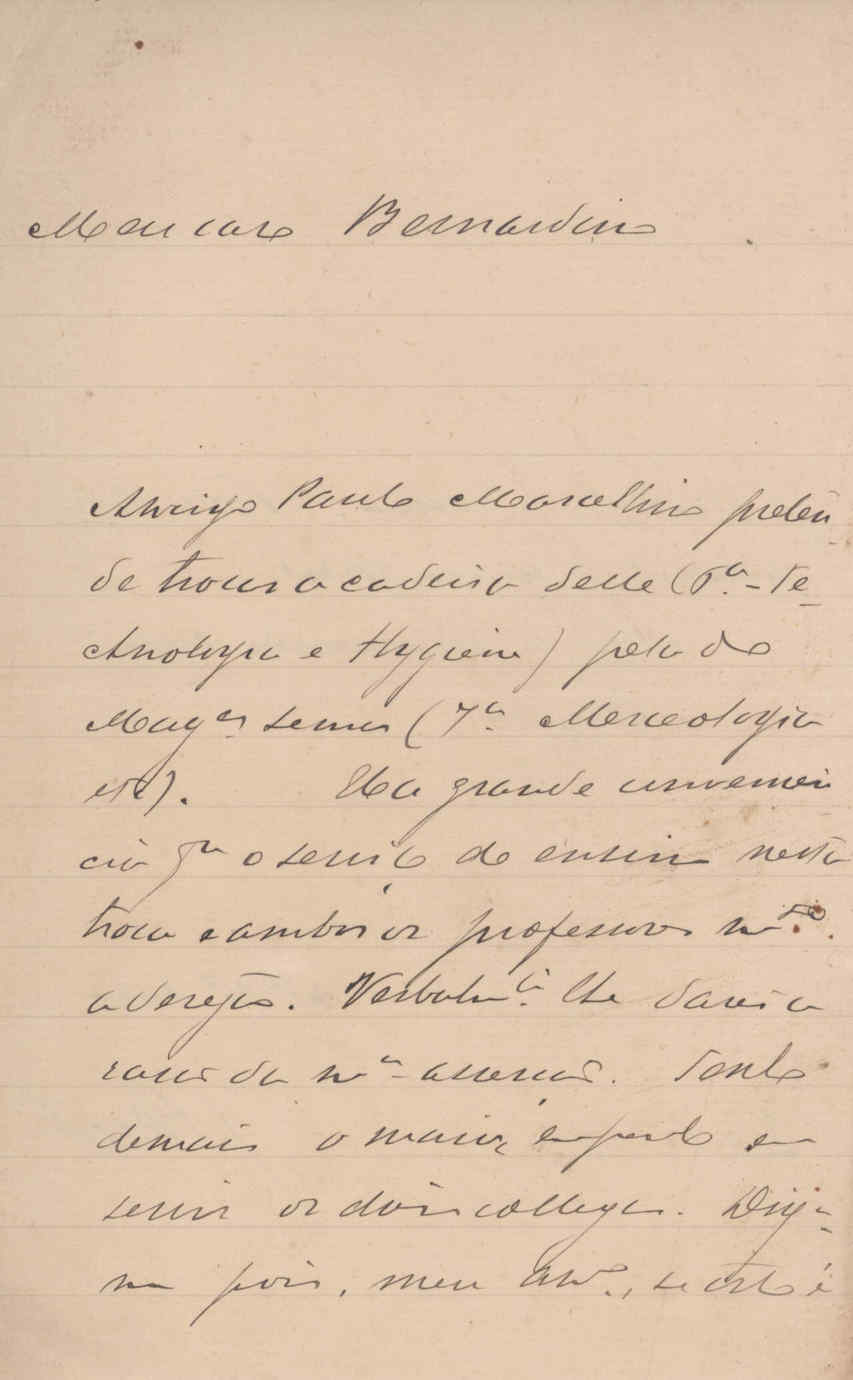 Meu caro Bernardino
Amigo Paulo Marcellino preten
de trocar a cadeira delle (6ª - Te
chnologia e Hygiene) pela do
Magªˢ Lemos (7ª Merceologia
etc). Ha grande convenien
cia pª o serviço do ensino nesta
troca e ambos os professores mᵗᵒ.
a desejão. Verbalmᵗᵉ. lhe darei a
razão da mª asserção. Tenho
demais o maior empenho em
servir os dois collegas. Diga-
me pois, meu Amº., se isto é